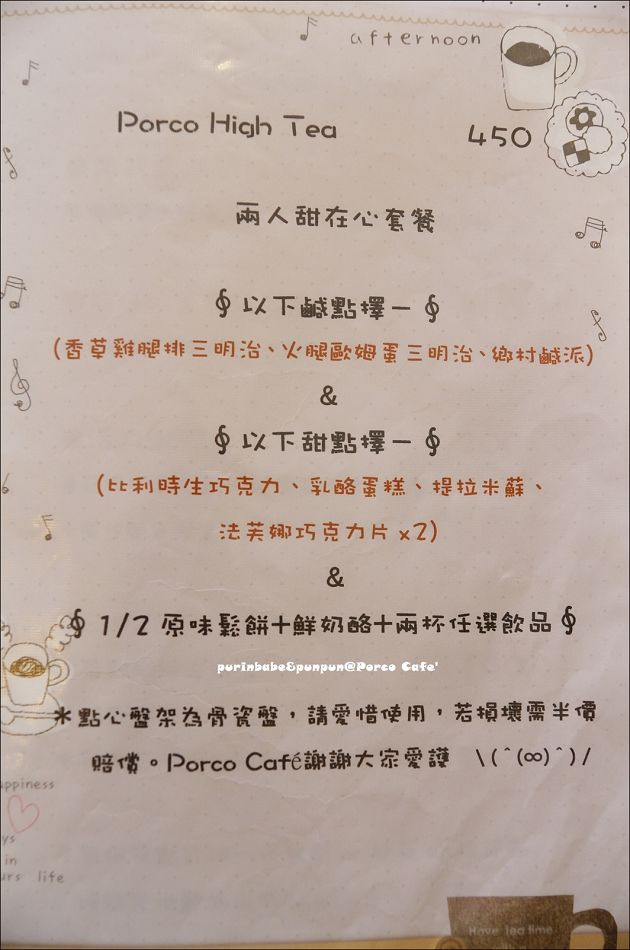 afternoon
Porco High Tea 450
兩人甜在心套餐
以下鹹點擇一
(香草雞腿排三明治、火腿歐姆蛋三明治、鄉村鹹派)
&
以下甜點擇一
(比利時生巧克力、乳酪蛋糕、提拉米蘇、
法芙娜巧克力片 x2)
&
1/2 原味鬆餅+鮮奶酪+兩杯任選飲品
purinbabe&punpun@Porco Cafe'
*點心盤架為骨瓷盤，請愛惜使用，若損壞需半價
賠償。Porco Café謝謝大家愛護 \(ˆ(∞)ˆ)/
appiness
ays
in
urs life
Have tea time